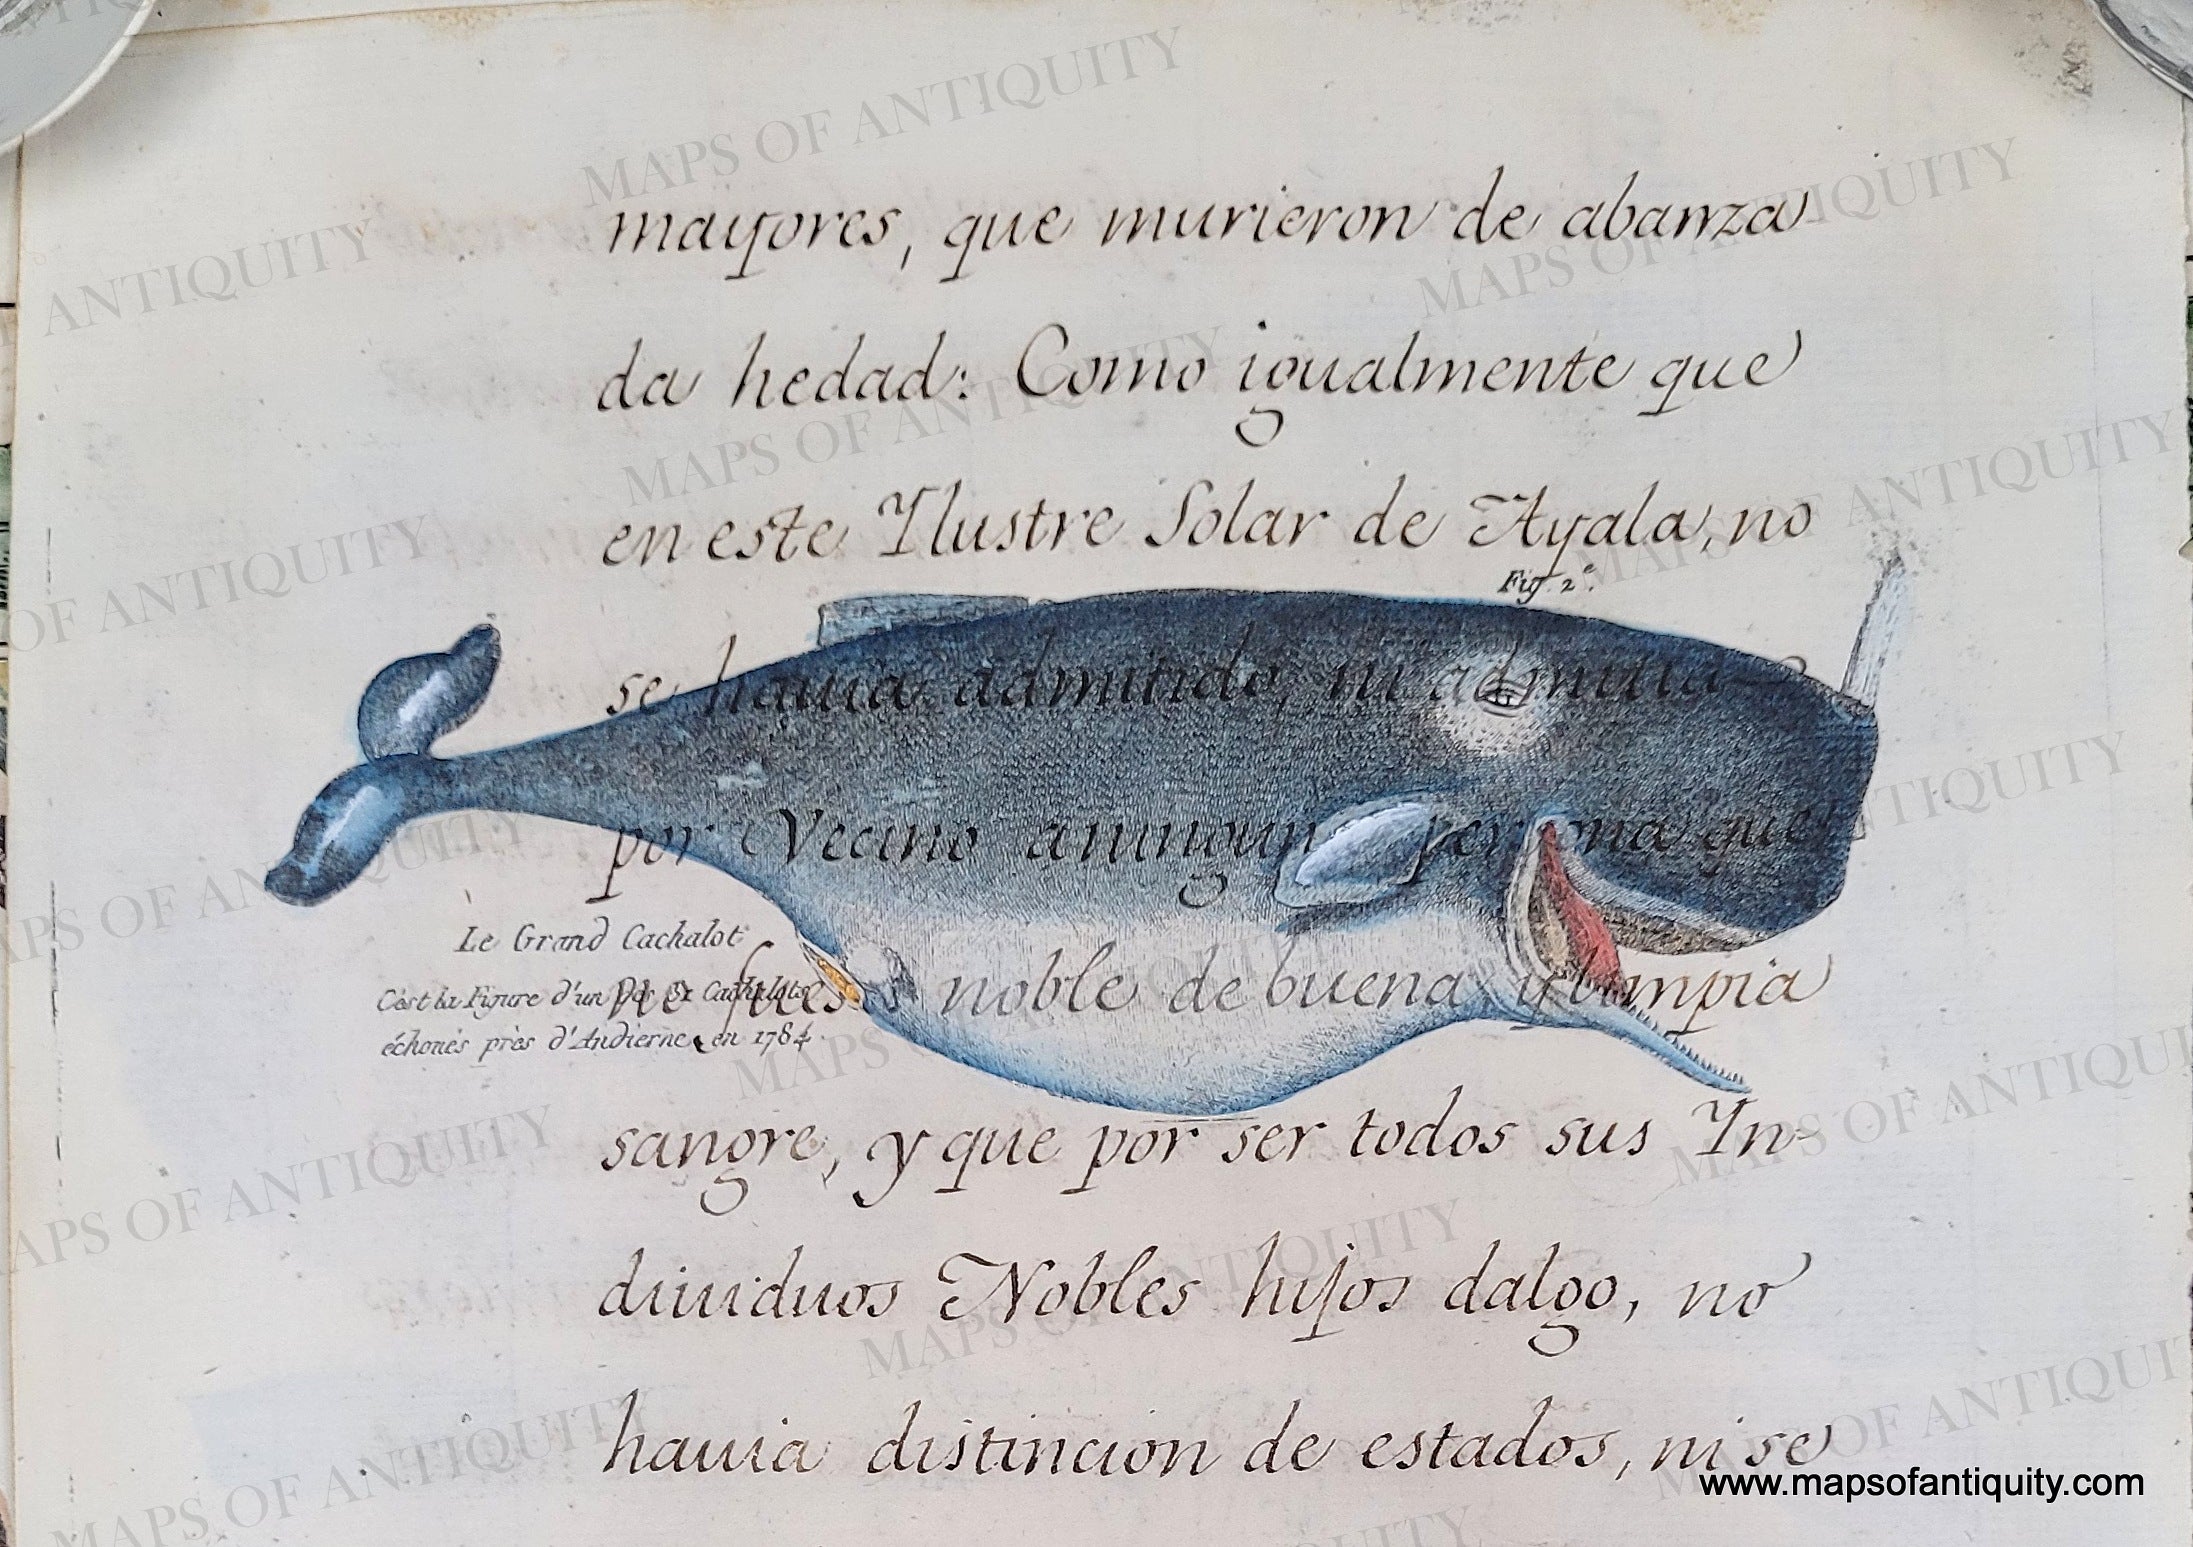 mayores, que murieron de abanza
da hedad: Como igualmente que
en este Ylustre Solar de Ayala, no
Fig. 2e.
se hauia admitido, ni admitia
por Vecino aningun persona que
Le Grand Cachalot
C'est la Figure d'un des 31 Cachalots
échoués près d'Audierne en 1784
no fuese noble de buena, y limpia
sangre, y que por ser todos sus Yn-
diuiduos Nobles hijos dalgo, no
hauia distincion de estados, ni se
MAPS OF ANTIQUITY
www.mapsofantiquity.com